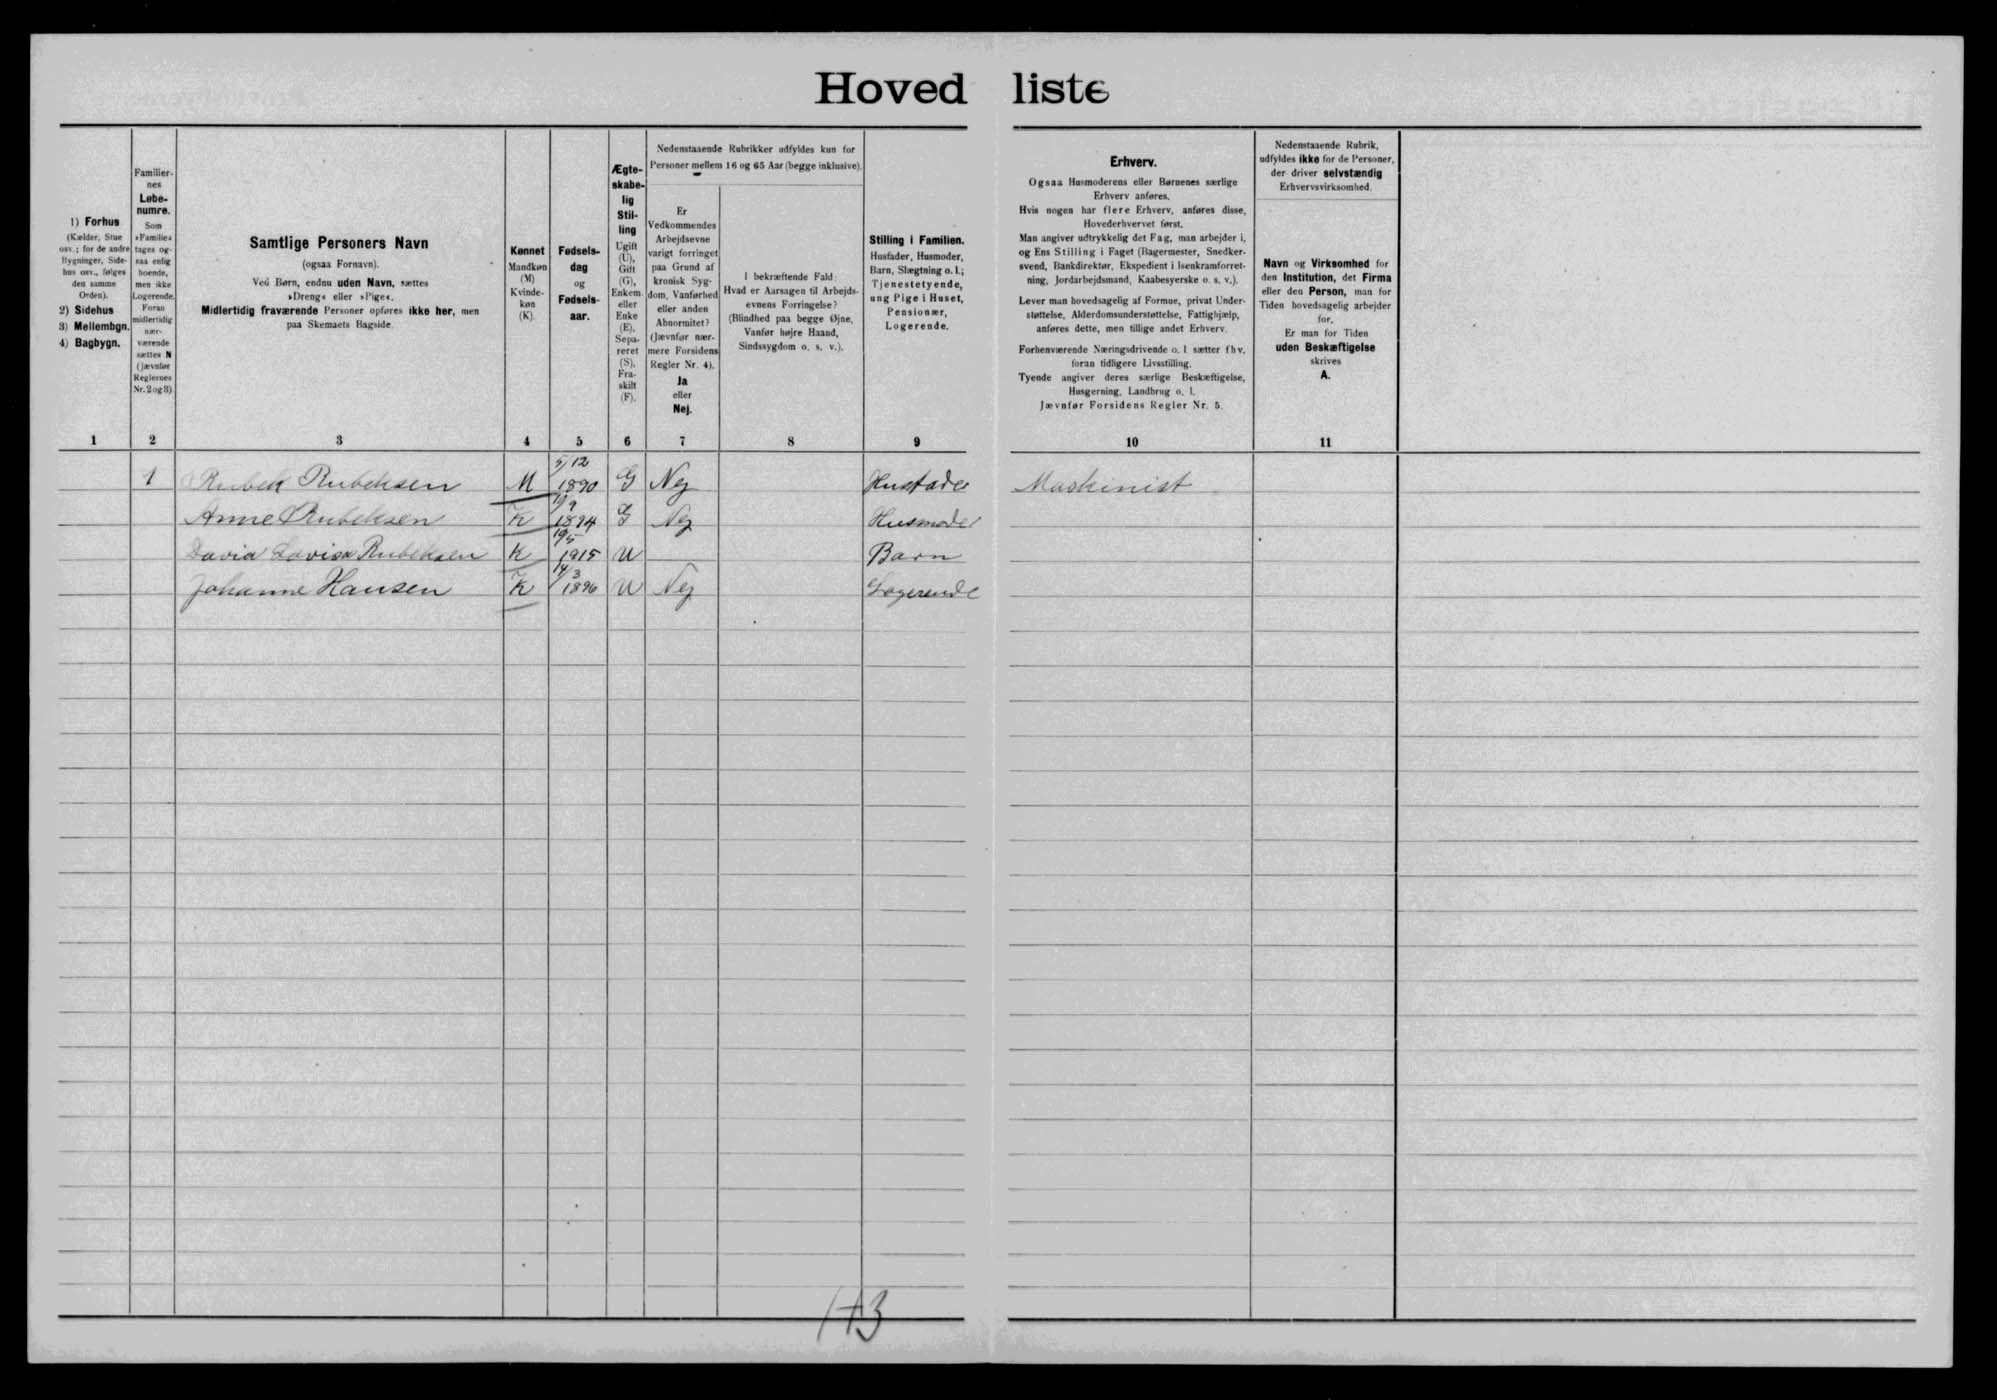 Hovedliste
1) Forhus
(Kælder, Stue
osv.; for de andre
Bygninger, Side-
hus osv., følges
den samme
Orden).
2) Sidehus
3) Mellembgn.
4) Bagbygn.
Familier-
nes
Løbe-
numre.
Som
»Familie«
tages og-
saa enlig
boende,
men ikke
Logerende.
Foran
midlertidig
nær-
værende
sættes N
(jævnfør
Reglernes
Nr. 2 og 3)
Samtlige Personers Navn
(ogsaa Fornavn).
Ved Børn, endnu uden Navn, sættes
»Dreng« eller »Pige«.
Midlertidig fraværende Personer opføres ikke her, men
paa Skemaets Bagside.
Kønnet
Mandkøn
(M)
Kvinde-
køn
(K).
Fødsels-
dag
og
Fødsels-
aar.
Ægte-
skabe-
lig
Stil-
ling
Ugift
(U),
Gift
(G),
Enkem.
eller
Enke
(E),
Sepa-
reret
(S),
Fra-
skilt
(F).
Nedenstaaende Rubrikker udfyldes kun for
Personer mellem 16 og 65 Aar (begge inklusive).
Er
Vedkommendes
Arbejdsevne
varigt forringet
paa Grund af
kronisk Syg-
dom, Vanførhed
eller anden
Abnormitet?
(Jævnfør nær-
mere Forsidens
Regler Nr. 4).
Ja
eller
Nej.
I bekræftende Fald:
Hvad er Aarsagen til Arbejds-
evnens Forringelse?
(Blindhed paa begge Øjne,
Vanfør højre Haand,
Sindssygdom o. s. v.).
Stilling i Familien.
Husfader, Husmoder,
Barn, Slægtning o. l.;
Tjenestetyende,
ung Pige i Huset,
Pensionær,
Logerende.
Erhverv.
Ogsaa Husmoderens eller Børnenes særlige
Erhverv anføres.
Hvis nogen har flere Erhverv, anføres disse,
Hovederhvervet først.
Man angiver udtrykkelig det Fag, man arbejder i,
og Ens Stilling i Faget (Bagermester, Snedker-
svend, Bankdirektør, Ekspedient i Isenkramforret-
ning, Jordarbejdsmand, Kaabesyerske o. s. v.).
Lever man hovedsagelig af Formue, privat Under-
støttelse, Alderdomsunderstøttelse, Fattighjælp,
anføres dette, men tillige andet Erhverv.
Forhenværende Næringsdrivende o. l. sætter fhv.
foran tidligere Livsstilling.
Tyende angiver deres særlige Beskæftigelse,
Husgerning, Landbrug o. l.
Jævnfør Forsidens Regler Nr. 5.
Nedenstaaende Rubrik,
udfyldes ikke for de Personer,
der driver selvstændig
Erhvervsvirksomhed.
Navn og Virksomhed for
den Institution, det Firma
eller den Person, man for
Tiden hovedsagelig arbejder
for.
Er man for Tiden
uden Beskæftigelse
skrives
A.
1 2 3 4 5 6 7 8 9 10 11
1 Rubek Rubeksen M 5/12 1890 G Nej Husfader Maskinist
Anne Rubeksen K 1894 G Nej Husmoder
Davia Lovisa Rubeksen K 19/5 1915 U Barn
Johanne Hansen K 14/3 1896 U Nej Logerende
1+3